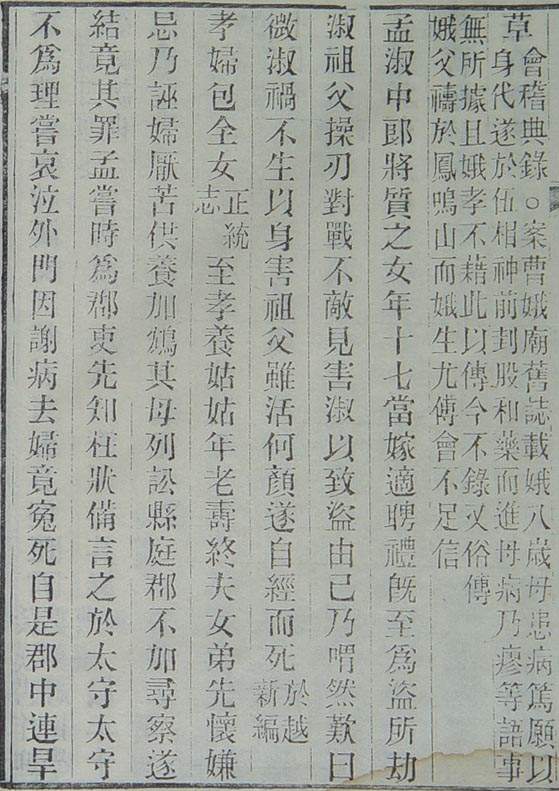 草會稽典錄○案曹娥廟舊誌載娥八歲母患病篤願以
身代遂於伍相神前刲股和藥而進母病乃瘳等語事
無所據且娥孝不藉此以傳今不錄又俗傳
娥父禱於鳳鳴山而娥生尤傅會不足信
孟淑中郎將質之女年十七當嫁適聘禮旣至爲盜所劫
淑祖父操刃對戰不敵見害淑以致盜由己乃喟然歎曰
微淑禍不生以身害祖父雖活何顏遂自經而死於越新編
孝婦包全女正統志至孝養姑姑年老壽終夫女弟先懷嫌
忌乃誣婦厭苦供養加鴆其母列訟縣庭郡不加尋察遂
結竟其罪孟嘗時爲郡吏先知枉狀備言之於太守太守
不爲理嘗哀泣外門因謝病去婦竟冤死自是郡中連旱